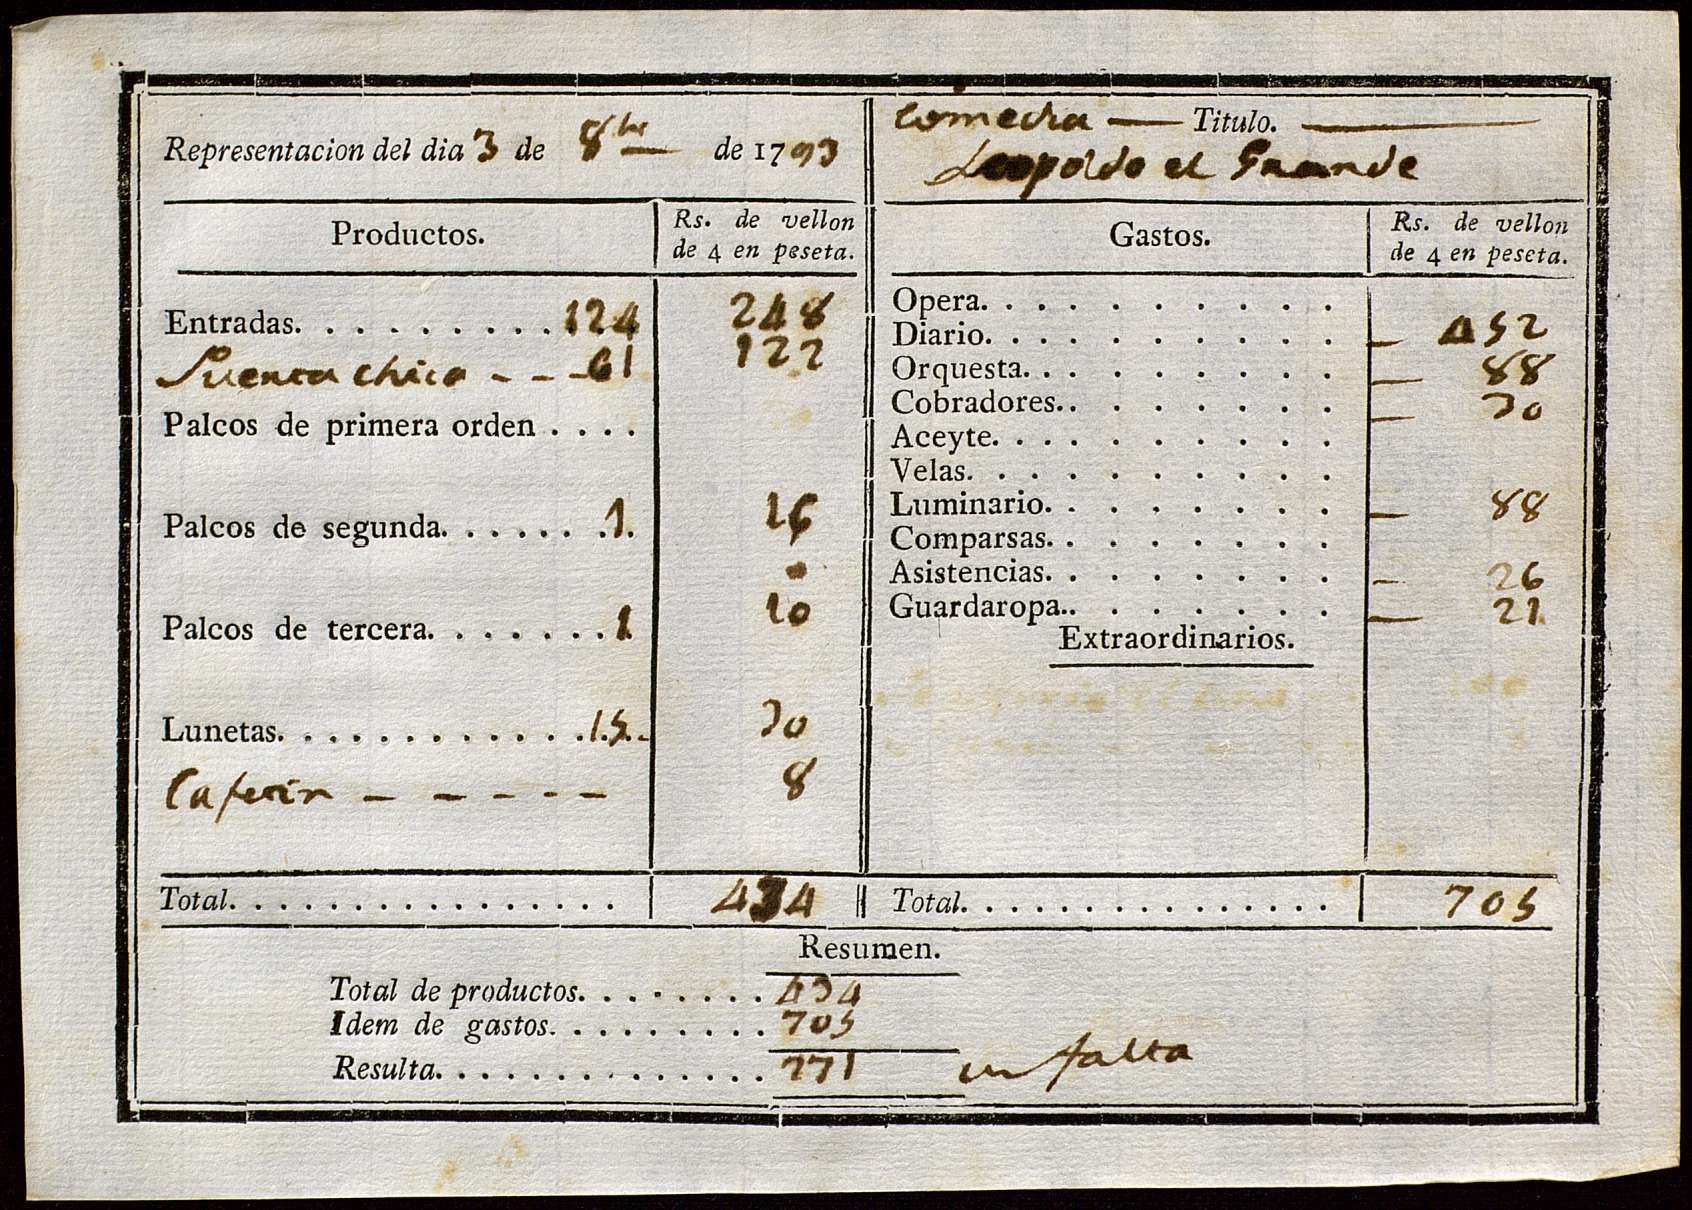 Representacion del dia 3 de 8bre de 1793
Comedia — Titulo. —
Leopoldo el Grande
Productos. Rs. de vellon de 4 en peseta.
Gastos. Rs. de vellon de 4 en peseta.
Entradas. . . . . . . . . . 124 248
Puerta chica - - - 61 122
Palcos de primera orden . . . .
Palcos de segunda. . . . . . . 1. 16
Palcos de tercera. . . . . . . 1. 10
Lunetas. . . . . . . . . . . . 15. 30
Cafetin — — — - - — 8
Total. . . . . . . . . . . . . . . . 434
Opera. . . . . . . . . .
Diario. . . . . . . . . . — 452
Orquesta. . . . . . . . . — 88
Cobradores.. . . . . . . — 30
Aceyte. . . . . . . . . .
Velas. . . . . . . . . .
Luminario. . . . . . . . — 88
Comparsas. . . . . . . .
Asistencias. . . . . . . . — 26
Guardaropa.. . . . . . . — 21.
Extraordinarios.
Total. . . . . . . . . . . . . . . 705
Resumen.
Total de productos. . . . . . . . 434
Idem de gastos. . . . . . . . . 705
Resulta. . . . . . . . . . . . . . 271 en falta